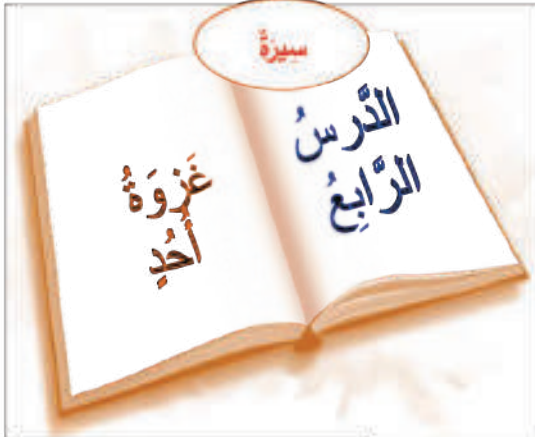 سِيرَةٌ
الدَّرسُ
الرَّابِعُ
غَزوَةُ
أُحُدٍ